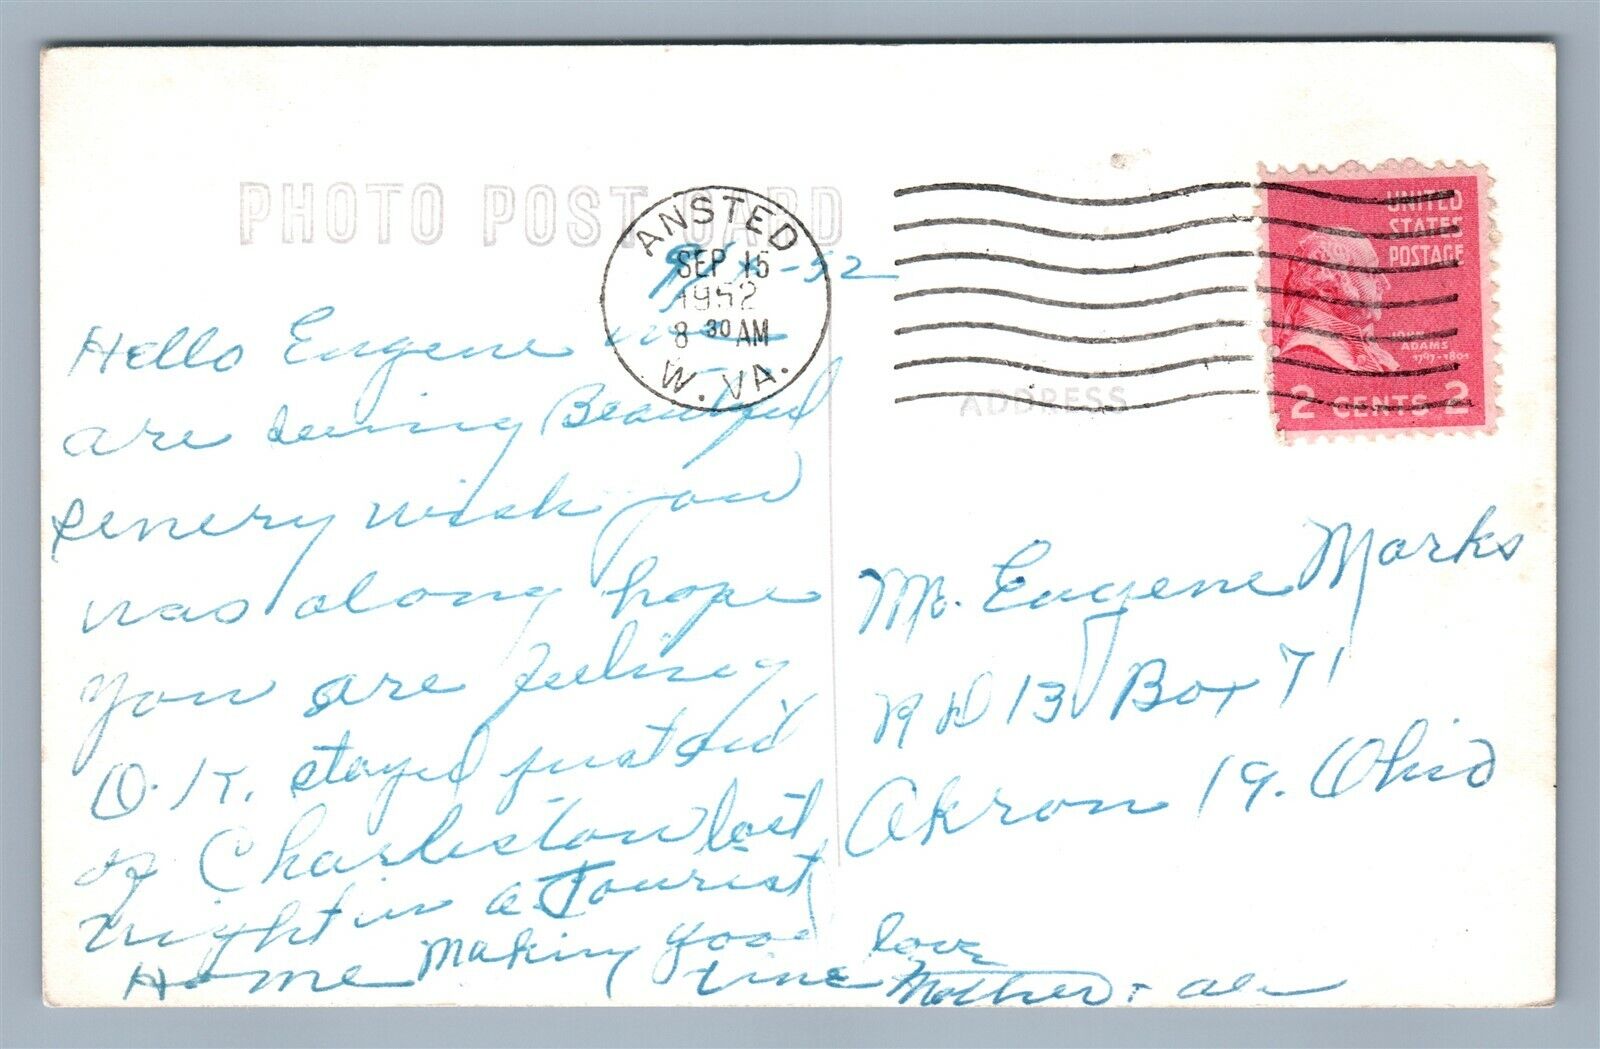 PHOTO POST CARD
ANSTED
SEP 15
1952
8 30 AM
W. VA.
UNITED
STATES
POSTAGE
JOHN
ADAMS
1797-1801
2 CENTS 2
ADDRESS
-52
Hello Eugene we
are seeing Beautiful
senery wish you
was along hope
you are feeling
O.K. stayed just
of Charleston last
night in a Tourist
Home making good
time
love
Mother + al
Mr. Eugene Marks
R D 13 Box 71
Akron 19. Ohio